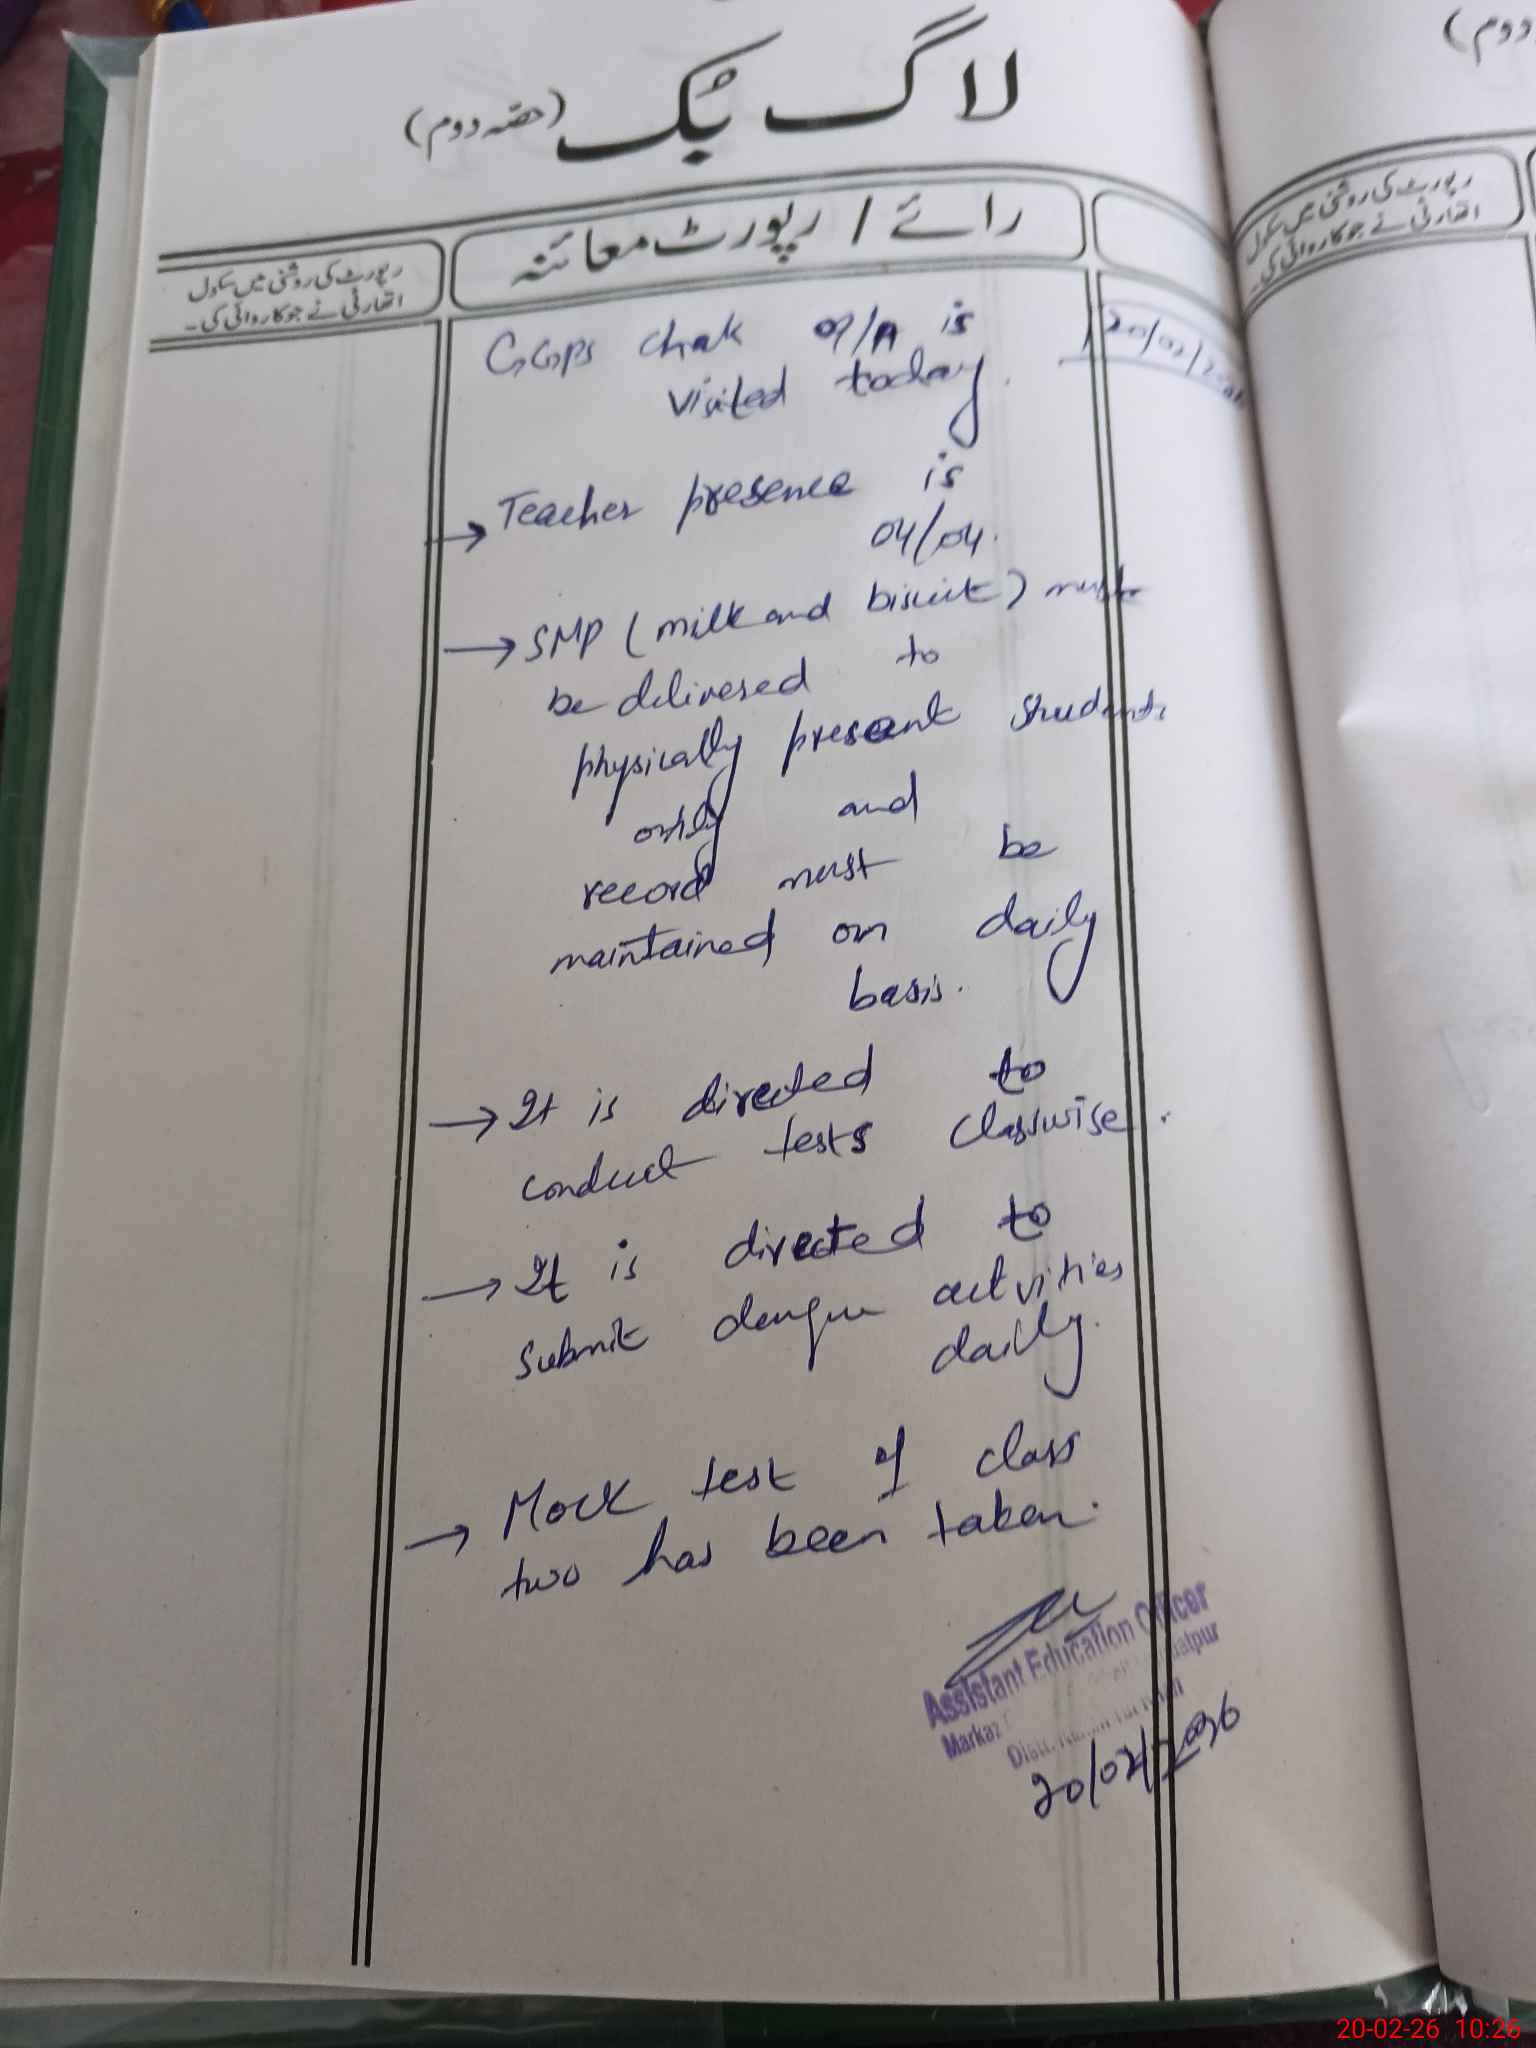 لاگ بک (حصہ دوم)
رائے / رپورٹ معائنہ
رپورٹ کی روشنی میں سکول
اتھارٹی نے جو کاروائی کی۔
20/02/2026
GGPS chak 09/A is
visited today.
→ Teacher presence is
04/04.
→ SMP (milk and biscuit) must
be delivered to
physically present students
only and
record must be
maintained on daily
basis.
→ It is directed to
conduct tests classwise.
→ It is directed to
submit dengue activities
daily.
→ Mock test of class
two has been taken.
Assistant Education Officer
Markaz
20/02/2026
دوم)
رپورٹ کی روشنی میں سکول
اتھارٹی نے جو کاروائی کی۔
20-02-26 10:26